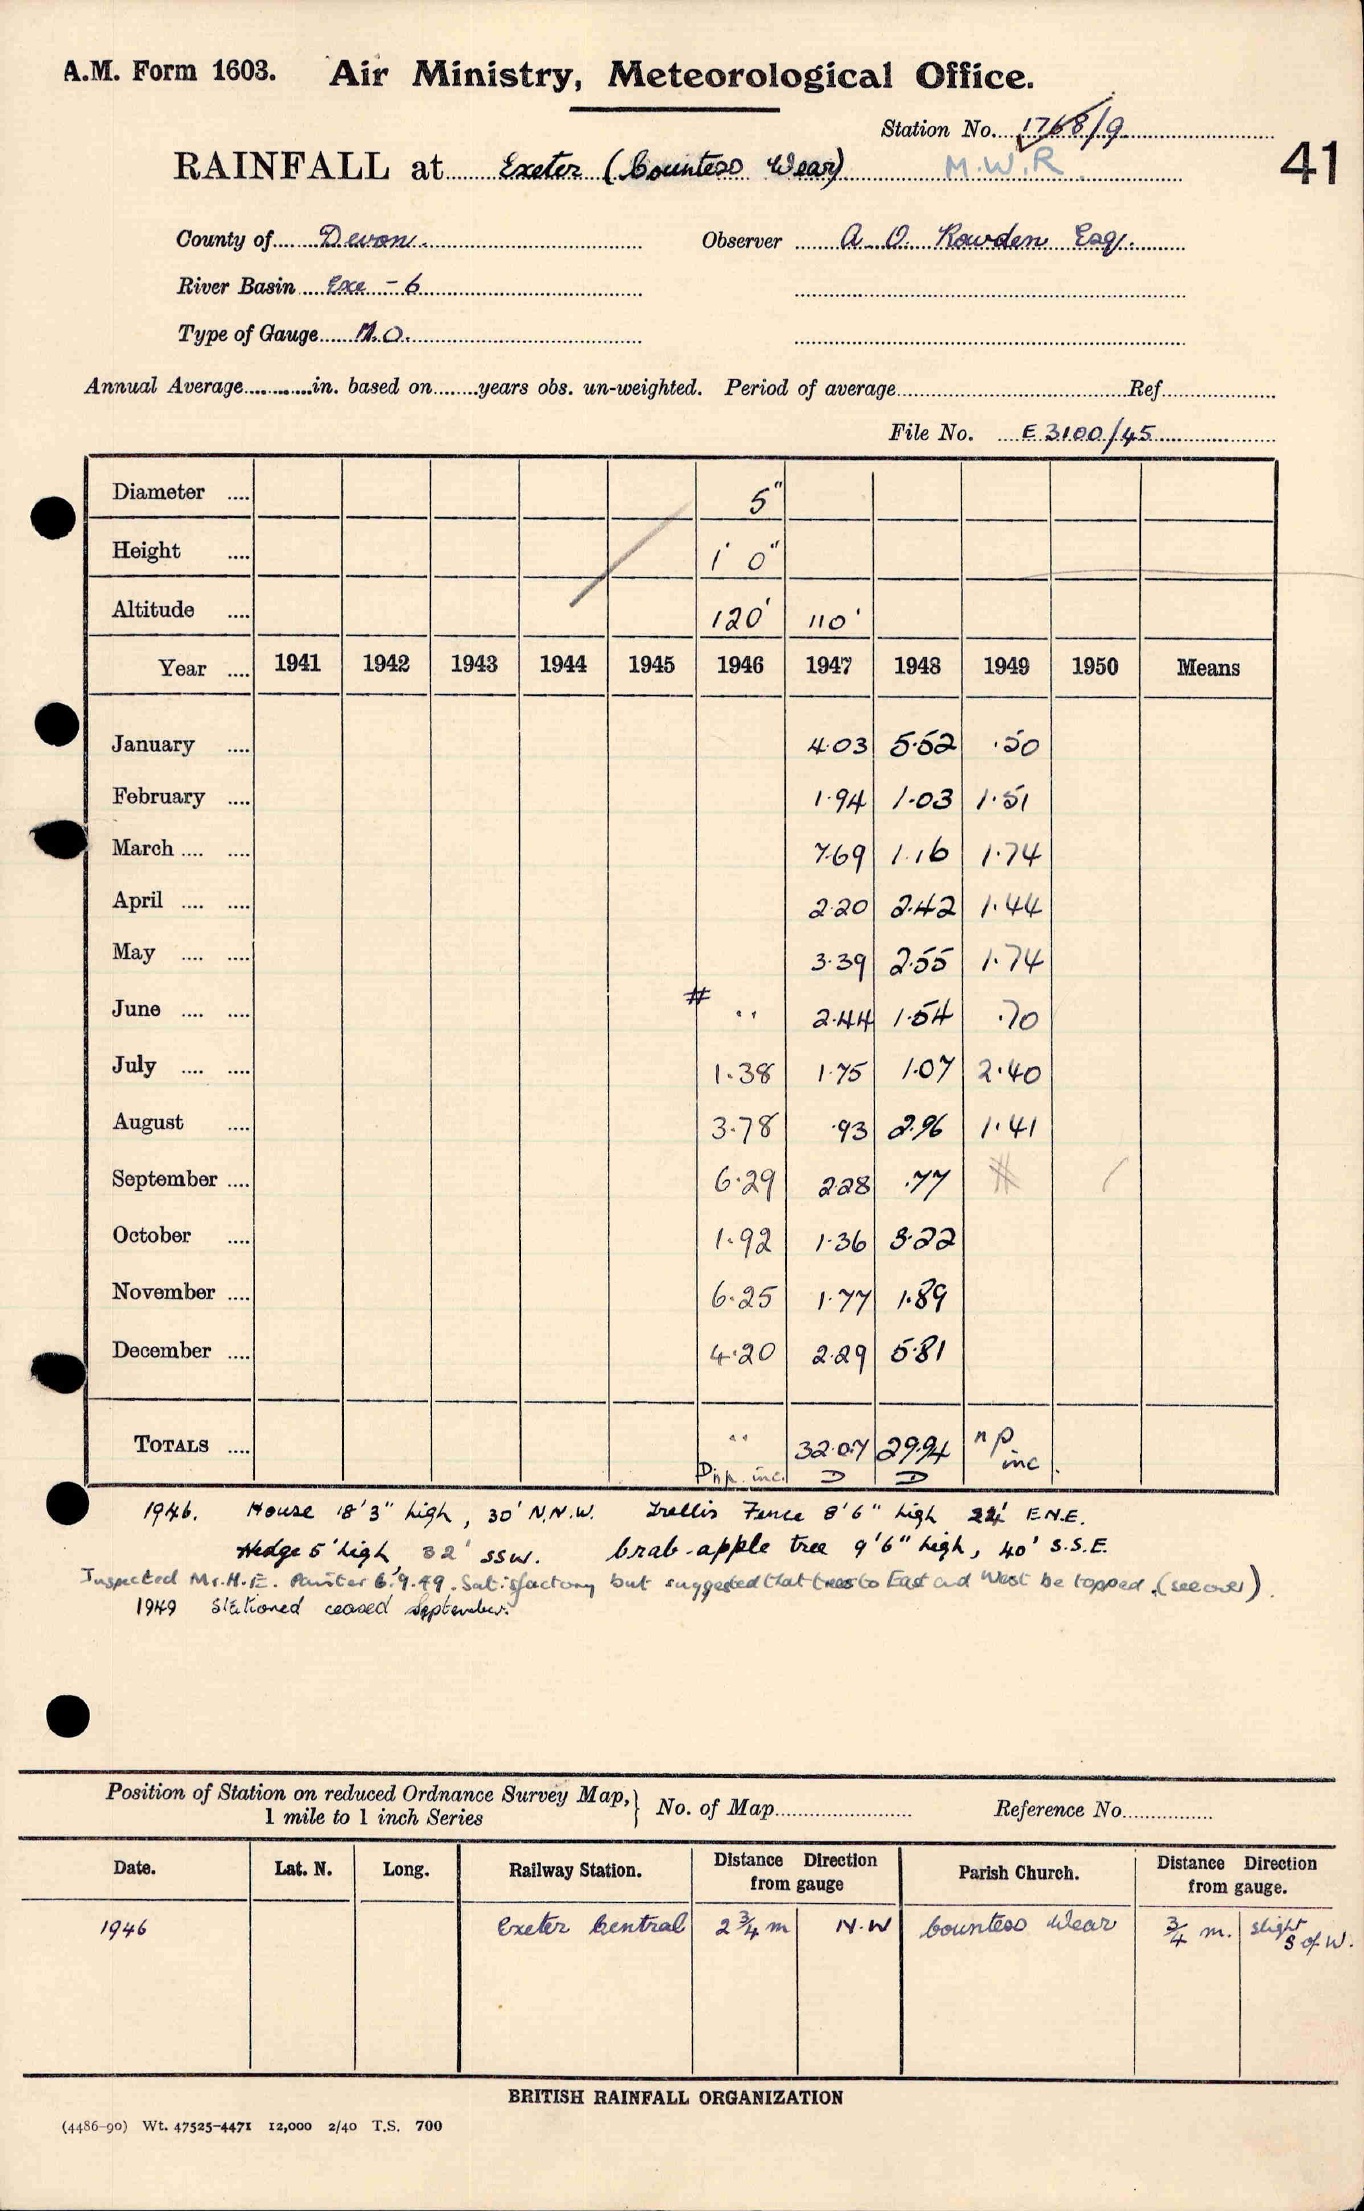 A.M. Form 1603. Air Ministry, Meteorological Office.
Station No. 1768/9
RAINFALL at Exeter (Countess Wear) M.W.R. 41
County of Devon. Observer A. O. Rowden Esq.
River Basin Exe - 6
Type of Gauge M.O.
Annual Average in. based on years obs. un-weighted. Period of average Ref
File No. E 3100/45
Diameter .... 5"
Height .... 1' 0"
Altitude .... 120' 110'
Year .... 1941 1942 1943 1944 1945 1946 1947 1948 1949 1950 Means
January .... 4.03 5.52 .50
February .... 1.94 1.03 1.51
March .... .... 7.69 1.16 1.74
April .... .... 2.20 2.42 1.44
May .... .... 3.39 2.55 1.74
June .... .... # .. 2.44 1.54 .70
July .... .... 1.38 1.75 1.07 2.40
August .... 3.78 .93 2.96 1.41
September .... 6.29 2.28 .77 #
October .... 1.92 1.36 3.22
November .... 6.25 1.77 1.89
December .... 4.20 2.29 5.81
TOTALS .... .. 32.07 29.94 np inc
inc. D D
1946. House 18'3" high, 30' N.N.W. Trellis Fence 8'6" high 22' E.N.E.
Hedge 5' high, 32' SSW. Crab-apple tree 9'6" high, 40' S.S.E.
Inspected Mr. H. E. Painter 6.9.49. Satisfactory but suggested that trees to East and West be topped. (see over).
1949 Stationed ceased September.
Position of Station on reduced Ordnance Survey Map,
1 mile to 1 inch Series } No. of Map Reference No.
Date. Lat. N. Long. Railway Station. Distance Direction from gauge Parish Church. Distance Direction from gauge.
1946 Exeter Central 2 3/4 m N.W Countess Wear 3/4 m. slight S of W.
BRITISH RAINFALL ORGANIZATION
(4486-90) Wt. 47525-4471 12,000 2/40 T.S. 700